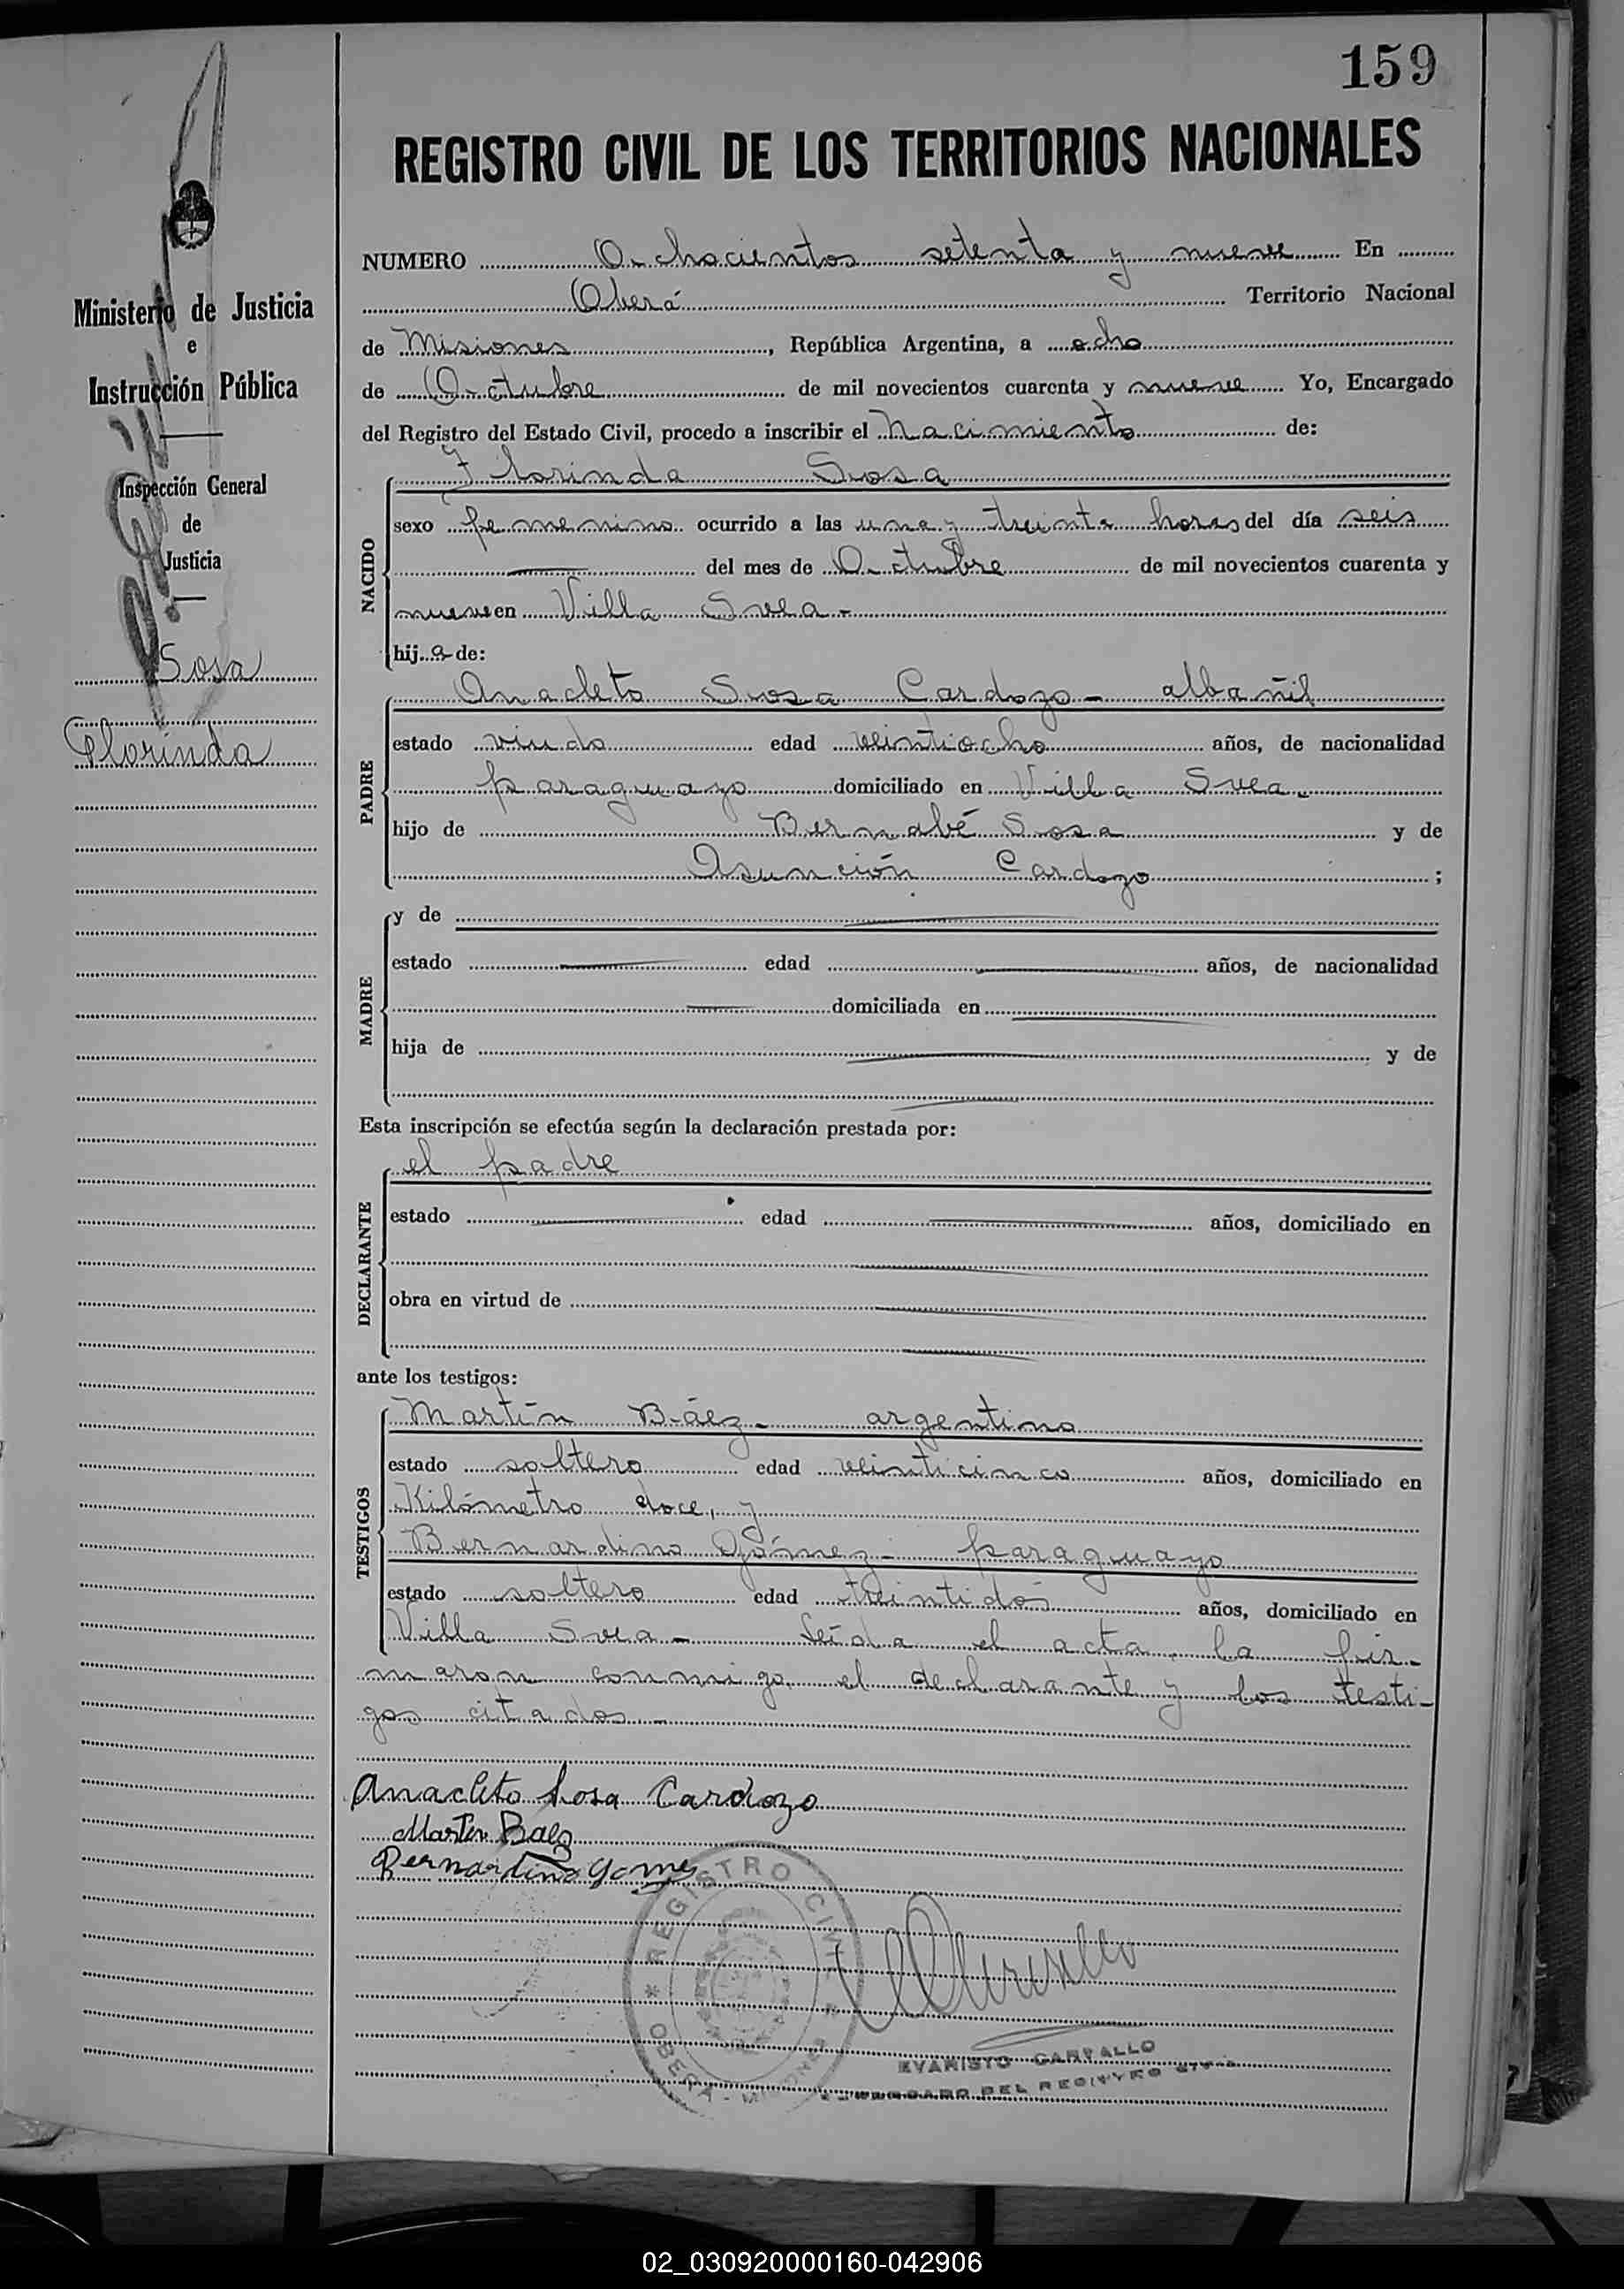 159
REGISTRO CIVIL DE LOS TERRITORIOS NACIONALES
NUMERO Ochocientos setenta y nueve En
Oberá Territorio Nacional
de Misiones, República Argentina, a ocho
de Octubre de mil novecientos cuarenta y nueve Yo, Encargado
del Registro del Estado Civil, procedo a inscribir el Nacimiento de:
Ministerio de Justicia
e
Instrucción Pública
Inspección General
de
Justicia
Sosa
Florinda
NACIDO
Florinda Sosa
sexo femenino ocurrido a las una y treinta horas del día seis
del mes de Octubre de mil novecientos cuarenta y
nueve en Villa Svea -
hija de:
PADRE
Anacleto Sosa Cardozo - albañil
estado viudo edad veintiocho años, de nacionalidad
paraguayo domiciliado en Villa Svea -
hijo de Bernabé Sosa y de
Asunción Cardozo ;
MADRE
y de
estado edad años, de nacionalidad
domiciliada en
hija de y de
Esta inscripción se efectúa según la declaración prestada por:
DECLARANTE
el padre
estado edad años, domiciliado en
obra en virtud de
ante los testigos:
TESTIGOS
Martín Báez - argentino
estado soltero edad veinticinco años, domiciliado en
Kilómetro doce, y
Bernardino Gómez - paraguayo
estado soltero edad treintidós años, domiciliado en
Villa Svea - Leída el acta, la fir-
maron conmigo el declarante y los testi-
gos citados. -
Anacleto Sosa Cardozo
Martin Baez
Bernardino Gomez
REGISTRO CIVIL
OBERÁ - MISIONES
EVARISTO CARVALLO
ENCARGADO DEL REGISTRO CIVIL
02_030920000160-042906